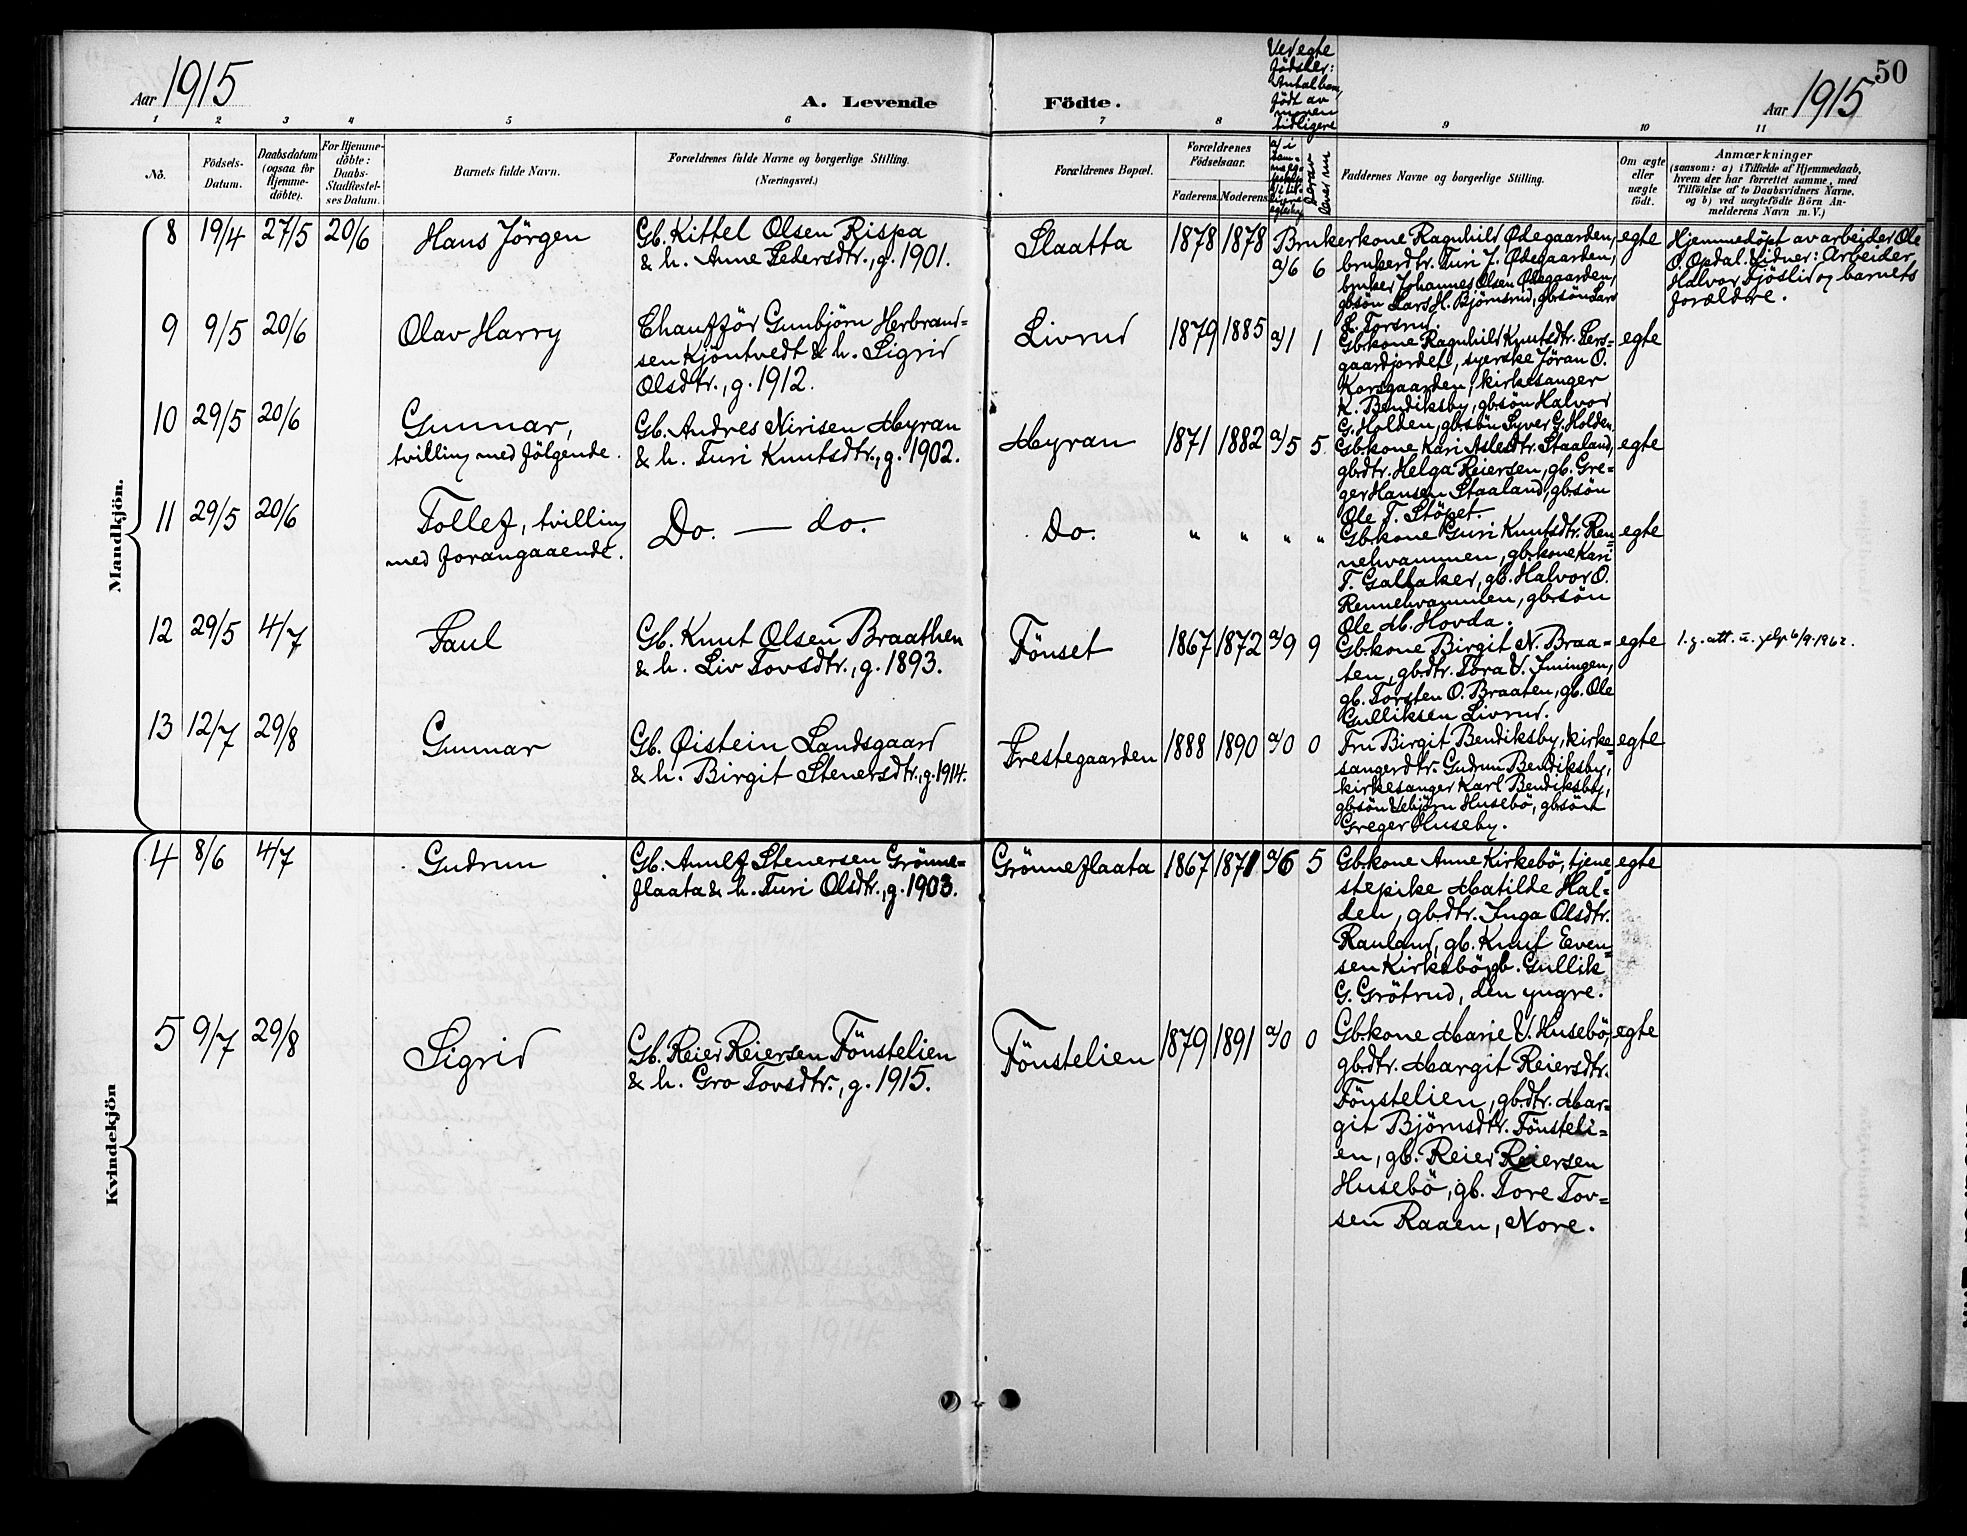 Aar 1915
A. Levende Födte.
50
Aar 1915
Ved egte
födsler:
Antal barn,
födt av
moren
tidligere
1 2 3 4 5 6 7 8 9 10 11
No.
Födsels-
Datum.
Daabsdatum
(ogsaa for
Hjemme-
döbte).
For Hjemme-
döbte:
Daabs-
Stadfæstel-
ses Datum.
Barnets fulde Navn.
Forældrenes fulde Navne og borgerlige Stilling.
(Næringsvei.)
Forældrenes Bopæl.
Forældrenes
Födselsaar.
Faderens. Moderens.
Derav
lever nu
Faddernes Navne og borgerlige Stilling.
Om ægte
eller
uægte
födt.
Anmærkninger
(saasom: a) i Tilfælde af Hjemmedaab,
hvem der har forrettet samme, med
Tilföielse af to Daabsvidners Navne,
og b) ved uægtefödte Börn An-
melderens Navn m. V.)
Mandkjön.
8 19/4 27/5 20/6
Hans Jörgen
Gb. Kittel Olsen Rispa
& h. Anne Pedersdtr., g. 1901.
Slaatta
1878 1878 a/6 6
Brukerkone Ragnhild Ødegaarden,
brukerdtr. Turi J. Ødegaarden,
bruker Johannes Olsen Ødegaarden,
gbsön Lars H. Björnsrud, gbsön Lars
L. Torsrud.
egte
Hjemmedöpt av arbeider Ole
O. Opdal. Vidner: Arbeider
Halvor Fjöslid og barnets
forældre.
9 9/5 20/6
Olav Harry
Chaufför Gunbjörn Herbrand=
sen Kjöntvedt & h. Sigrid
Olsdtr., g. 1912.
Livrud
1879 1885 a/1 1
Gbkone Ragnhild Knutsdtr. Pers=
gaardjordet, syerske Jöran O.
Korsgaarden, kirkesanger
K. Bendiksby, gbsön Halvor
G. Holden, gbsön Syver G. Holden.
egte
10 29/5 20/6
Gunnar,
tvilling med fölgende.
Gb. Andres Nirisen Myran
& h. Turi Knutsdtr., g. 1902.
Myran
1871 1882 a/5 5
Gbkone Kari Aslesdtr. Staaland,
gbdtr. Helga Reiersen, gb. Gre=
ger Hansen Staaland, gbsön
Ole T. Stöpet.
egte
11 29/5 20/6
Tollef, tvilling
med forangaaende.
Do. — do.
Do.
" " " "
Gbkone Guri Knutsdtr. Ren=
nehvammen, gbkone Kari
T. Gallaker, gb. Halvor O.
Rennehvammen, gbsön
Ole M. Hovda.
egte
12 29/5 4/7
Paul
Gb. Knut Olsen Braathen
& h. Liv Tovsdtr., g. 1893.
Fönset
1867 1872 a/9 9
Gbkone Birgit N. Braa=
ten, gbdtr. Tora V. Imingen,
gb. Torsten O. Braaten, gb. Ole
Gulliksen Livrud.
egte
6/9-1962.
13 12/7 29/8
Gunnar
Gb. Øistein Landsgaard
& h. Birgit Stenersdtr., g. 1914.
Prestegaarden
1888 1890 a/0 0
Fru Birgit Bendiksby, kirke=
sangerdtr. Gudrun Bendiksby,
kirkesanger Karl Bendiksby,
gbsön Vebjörn Husebö, gbsön
Greger Huseby.
egte
Kvindekjön
4 8/6 4/7
Gudrun
Gb. Anulf Stenersen Grönne=
flaata & h. Turi Olsdtr., g. 1903.
Grönneflaata
1867 1871 a/6 5
Gbkone Anne Kirkebö, tjene=
stepike Matilde Hal=
den, gbdtr. Inga Olsdtr.
Rauland, gb. Knut Even=
sen Kirkebö, gb. Gullik
G. Grötrud, den yngre.
egte
5 9/7 29/8
Sigrid
Gb. Reier Reiersen Fönstelien
& h. Gro Tovsdtr., g. 1915.
Fönstelien
1879 1891 a/0 0
Gbkone Marie V. Husebö,
gbdtr. Margit Reiersdtr.
Fönstelien, gbdtr. Mar=
git Björnsdtr. Fönsteli=
en, gb. Reier Reiersen
Husebö, gb. Tore Tov=
sen Raaen, Nore.
egte